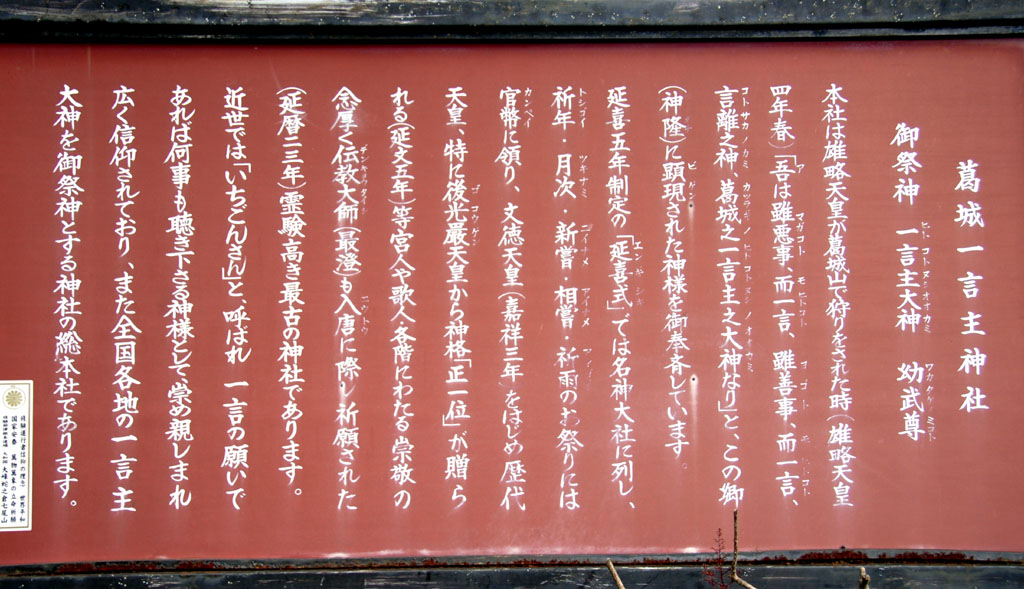 葛城一言主神社
御祭神 一言主大神 幼武尊
本社は雄略天皇が葛城山で狩りをされた時(雄略天皇
四年春)「吾は雖悪事、而一言、雖善事、而一言、
言離之神、葛城之一言主之大神なり」と、この御
(神降)に顕現された神様を御奉斉しています。
延喜五年制定の「延喜式」では名神大社に列し、
祈年・月次・新嘗・相嘗・祈雨のお祭りには
官幣に預り、文徳天皇(嘉祥三年)をはじめ歴代
天皇、特に後光厳天皇から神格「正一位」が贈ら
れる(延文五年)等宮人や歌人各階にわたる崇敬の
念厚く伝教大師(最澄)も入唐に際し祈願された
(延暦二三年)霊験高き最古の神社であります。
近世では「いちごんさん」と、呼ばれ一言の願いで
あれば何事も聴き下さる神様として、崇め親しまれ
広く信仰されており、また全国各地の一言主
大神を御祭神とする神社の総本社であります。
国家安泰
大峰蛇之倉七尾山